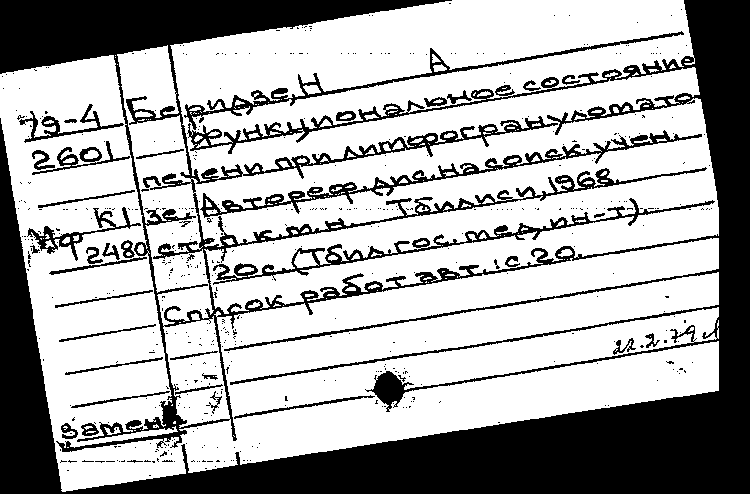 79-4 Беридзе, Н А
2601 Функциональное состояние
печени при лимфогрануломато-
зе. Автореф. дис. на соиск. учен.
Мф К1 степ. к.м.н. Тбилиси, 1968.
2480 20с. (Тбил. гос. мед. ин-т).
Список работ авт.: с. 20.
22.2.79
замена